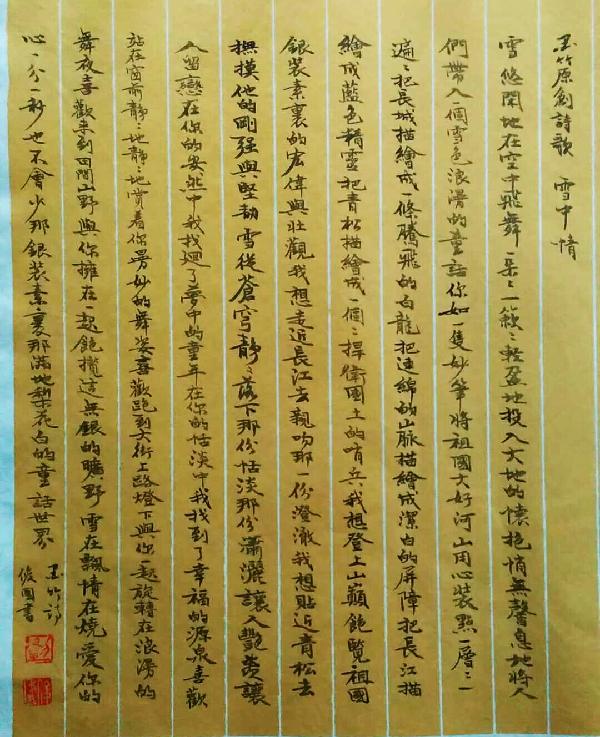 玉竹原創詩歌 雪中情
雪悠閑地在空中飛舞一朵々一簌々輕盈地投入大地的懷抱悄無聲息地將人
們帶入一個雪色浪漫的童話你如一隻妙筆將祖國大好河山用心裝點一層々一
遍々把長城描繪成一條騰飛的白龍把連綿的山脈描繪成潔白的屏障把長江描
繪成藍色精靈把青松描繪成一個々捍衛國土的哨兵我想登上山巔飽覽祖國
銀裝素裹的宏偉與壯觀我想走近長江去親吻那一份澄澈我想貼近青松去
撫摸他的剛强與堅韌雪從蒼穹靜々落下那份恬淡那份瀟灑讓人艷羨讓
人留戀在你的安然中我找迴了夢中的童年在你的恬淡中我找到了幸福的源泉喜歡
站在窗前靜々地靜々地賞着你曼妙的舞姿喜歡跑到大街上路燈下與你一起旋轉在浪漫的
舞夜喜歡来到田間山野與你擁在一起飽攬這無銀的曠野雪在飄情在燒愛你的
心一分一秒也不會少那銀装素裹那滿地梨花白的童話世界
玉竹詩
俊國書